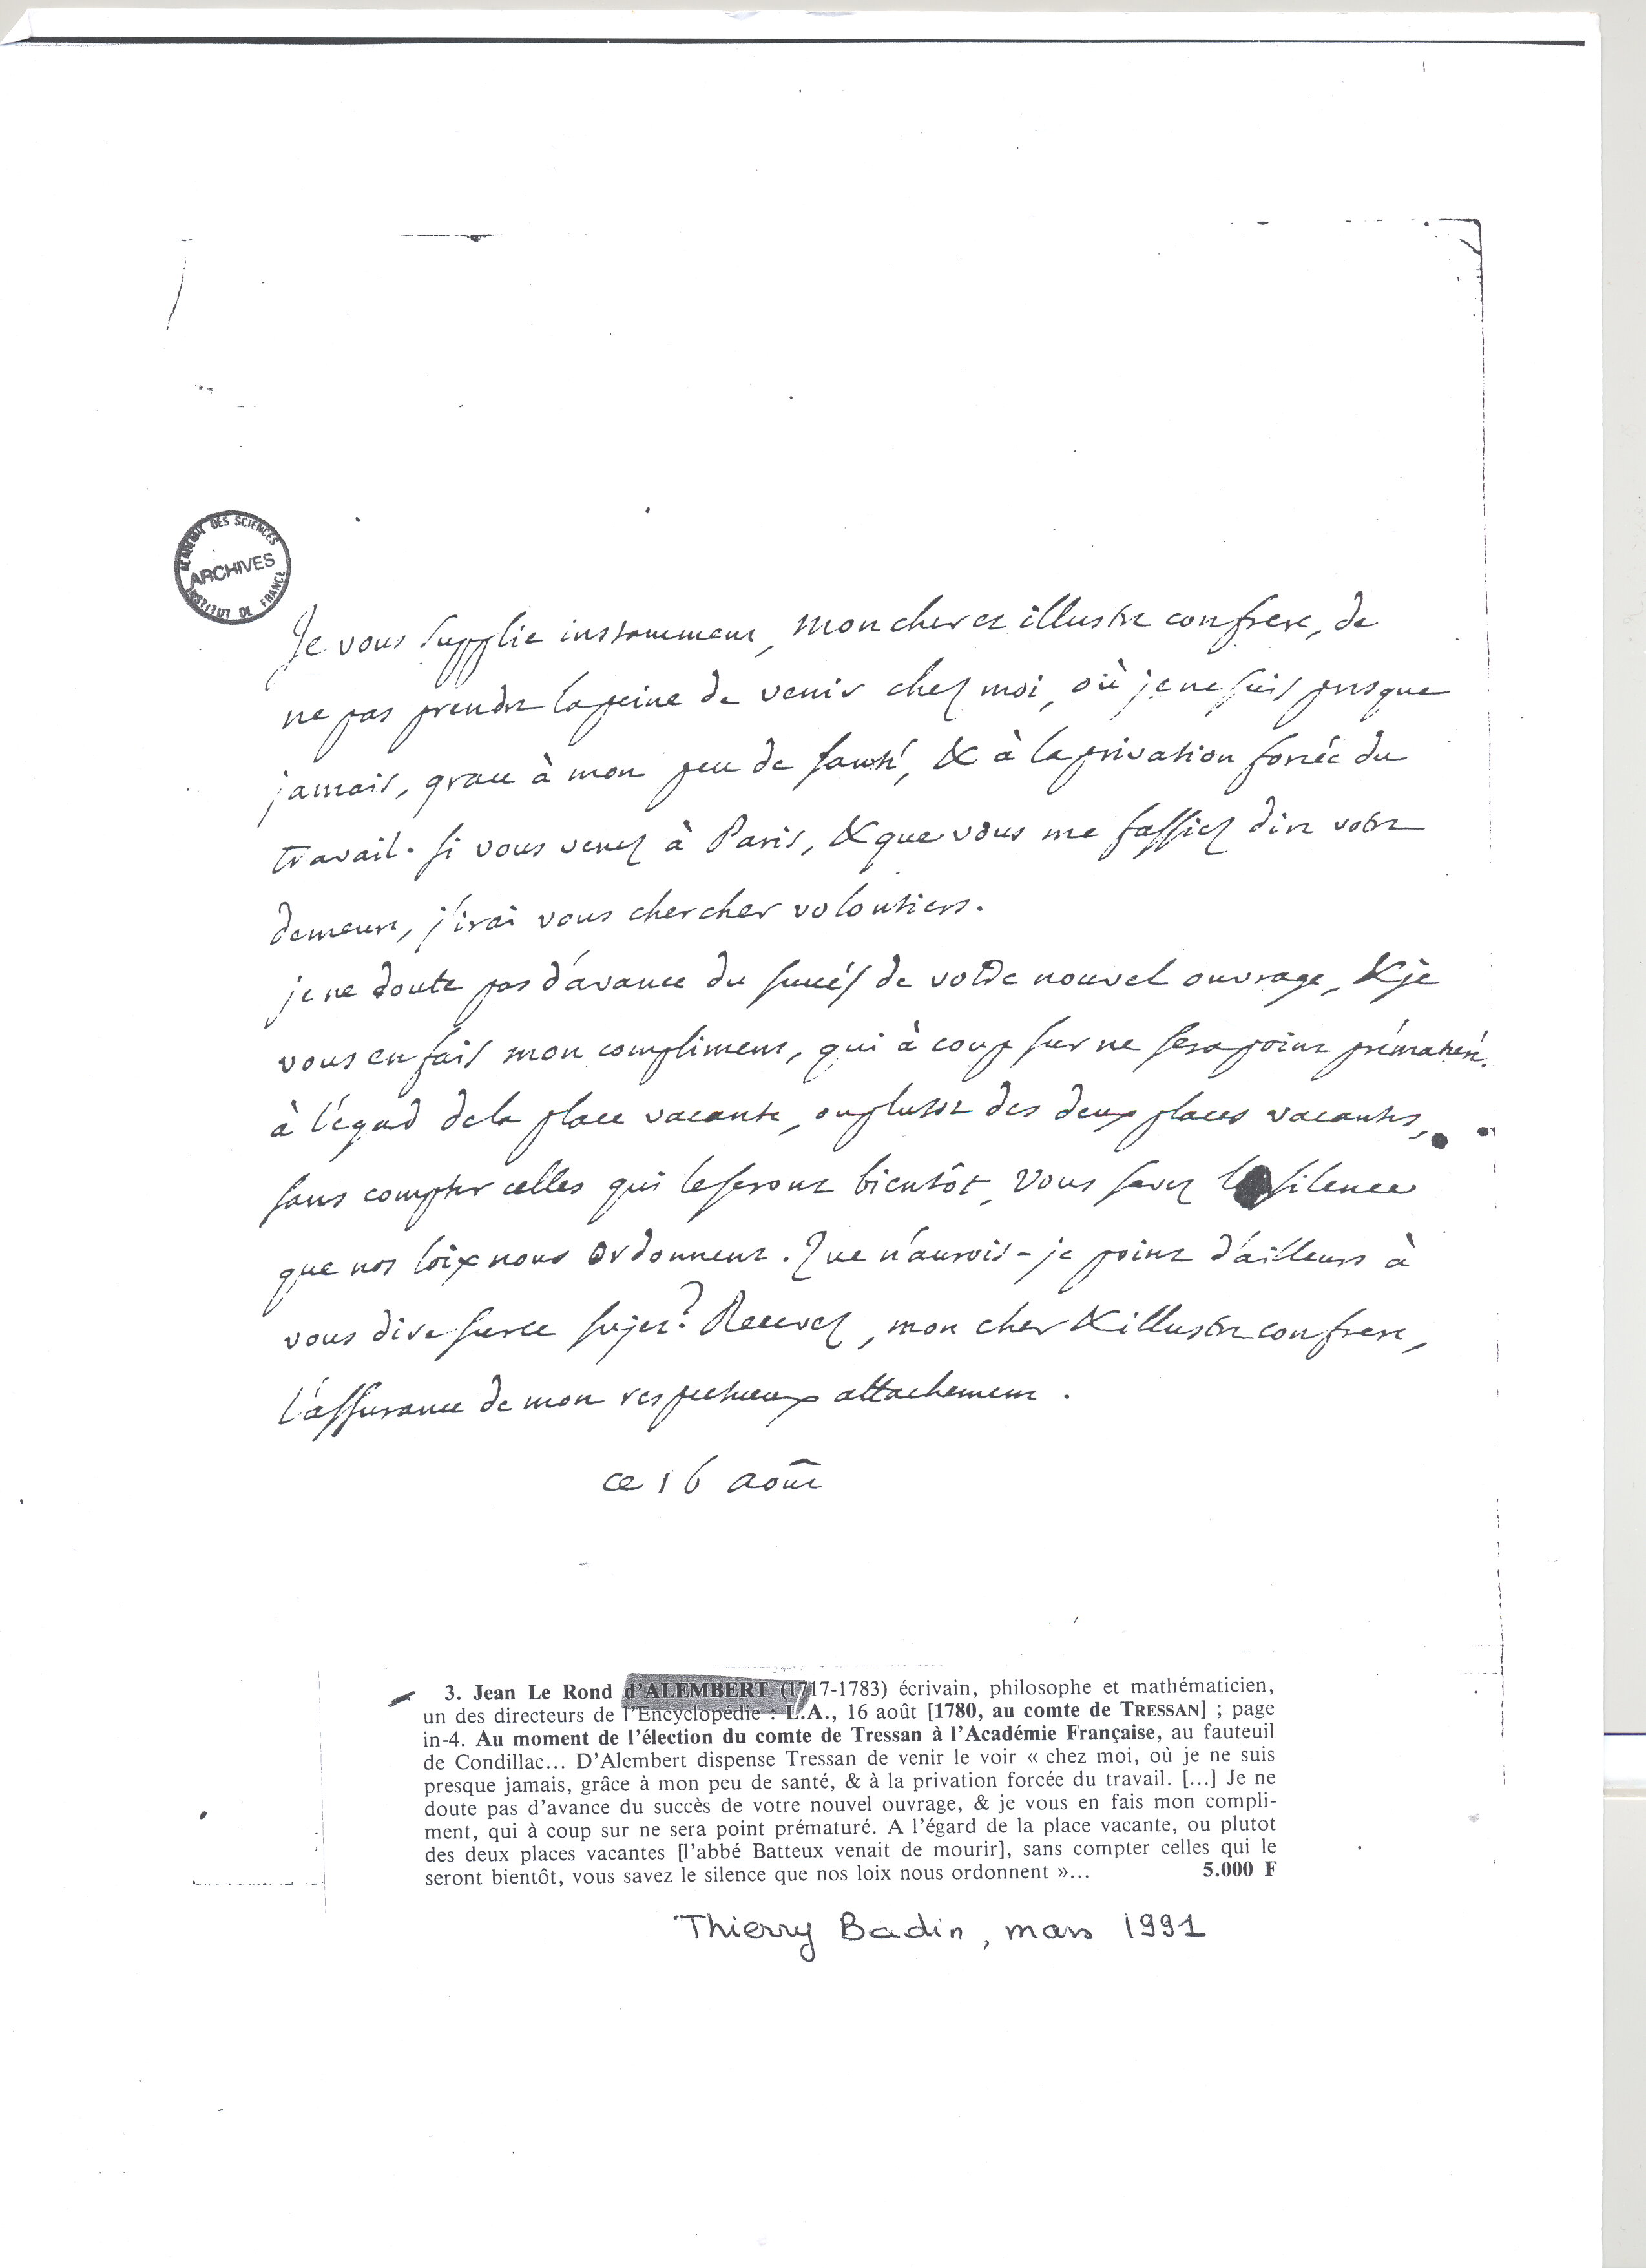 ACADEMIE DES SCIENCES
ARCHIVES
INSTITUT DE FRANCE
Je vous supplie instamment, mon cher et illustre confrere, de
ne pas prendre la peine de venir chez moi, où je ne suis presque
jamais, grace à mon peu de santé, & à la privation forcée du
travail. si vous venez à Paris, & que vous me fassiez dire votre
demeure, j'irai vous chercher volontiers.
je ne doute pas d'avance du succés de votre nouvel ouvrage, & je
vous en fais mon compliment, qui à coup sur ne sera point prématuré.
à l'égard de la place vacante, ou plutot des deux places vacantes,
sans compter celles qui le seront bientôt, vous savez le silence
que nos loix nous ordonnent. Que n'aurois-je point d'ailleurs à
vous dire sur ce sujet? Recevez, mon cher & illustre confrere,
l'assurance de mon respectueux attachement.
ce 16 août
3. Jean Le Rond d'ALEMBERT (1717-1783) écrivain, philosophe et mathématicien,
un des directeurs de l'Encyclopédie : L.A., 16 août [1780, au comte de TRESSAN] ; page
in-4. Au moment de l'élection du comte de Tressan à l'Académie Française, au fauteuil
de Condillac... D'Alembert dispense Tressan de venir le voir « chez moi, où je ne suis
presque jamais, grâce à mon peu de santé, & à la privation forcée du travail. [...] Je ne
doute pas d'avance du succès de votre nouvel ouvrage, & je vous en fais mon compli-
ment, qui à coup sur ne sera point prématuré. A l'égard de la place vacante, ou plutot
des deux places vacantes [l'abbé Batteux venait de mourir], sans compter celles qui le
seront bientôt, vous savez le silence que nos loix nous ordonnent »... 5.000 F
Thierry Badin, mars 1991